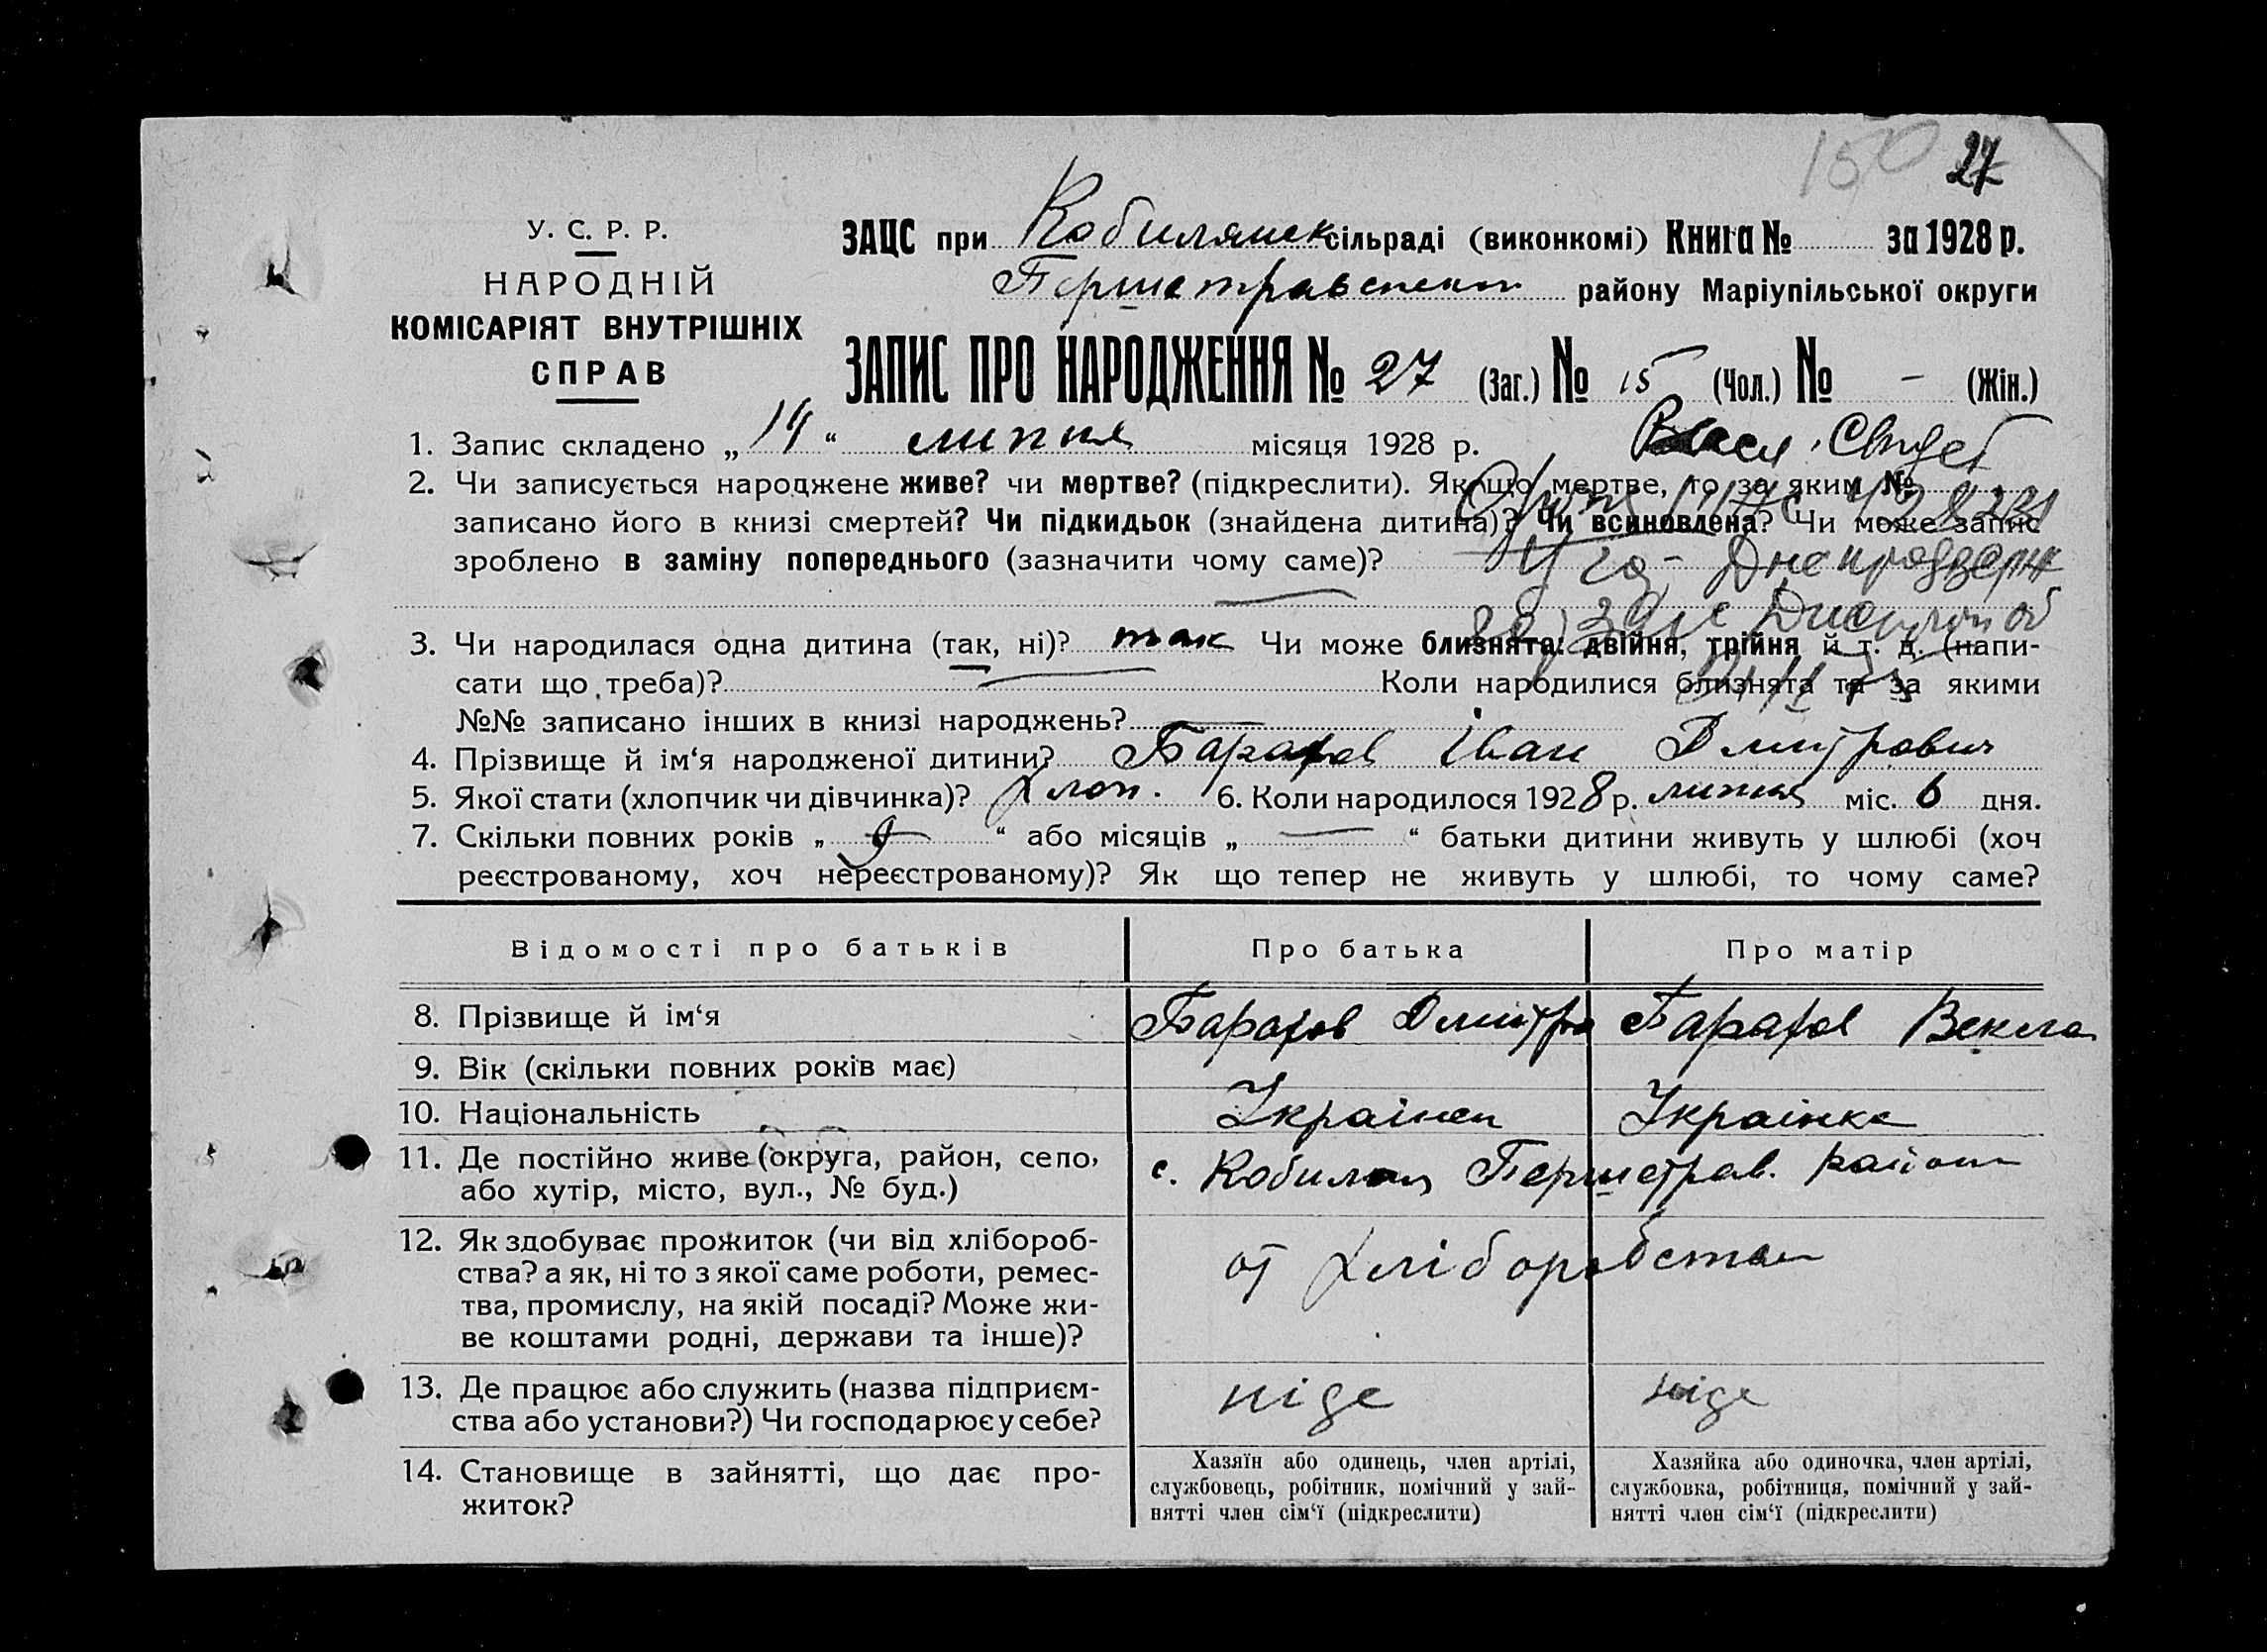 150 27
У. С. Р. Р.
НАРОДНІЙ
КОМІСАРІЯТ ВНУТРІШНІХ
СПРАВ
ЗАЦС при Кобилянск сільраді (виконкомі) Книга № за 1928 р.
Першетравенск району Маріупільської округи
ЗАПИС ПРО НАРОДЖЕННЯ № 27 (Заг.) № 15 (Чол.) № – (Жін.)
1. Запис складено „ 14 “ липня місяця 1928 р.
2. Чи записується народжене живе? чи мертве? (підкреслити). Якщо мертве, то за яким №
записано його в книзі смертей? Чи підкидьок (знайдена дитина)? Чи всиновлена? Чи може запис
зроблено в заміну попереднього (зазначити чому саме)?
3. Чи народилася одна дитина (так, ні)? так Чи може близнята: двійня, трійня й т. д. (напи-
сати що треба)? Коли народилися близнята та за якими
№№ записано інших в книзі народжень?
4. Прізвище й ім‘я народженої дитини? Іван Дмитрович
5. Якої стати (хлопчик чи дівчинка)? Хлоп. 6. Коли народилося 1928 р. липня міс. 6 дня.
7. Скільки повних років „ 9 “ або місяців „ — “ батьки дитини живуть у шлюбі (хоч
реєстрованому, хоч нереєстрованому)? Як що тепер не живуть у шлюбі, то чому саме?
Відомості про батьків Про батька Про матір
8. Прізвище й ім‘я Дмитро Векла
9. Вік (скільки повних років має)
10. Національність Українец Українка
11. Де постійно живе (округа, район, село,
або хутір, місто, вул., № буд.)
с. Першетрав. район
12. Як здобуває прожиток (чи від хлібороб-
ства? а як, ні то з якої саме роботи, ремес-
тва, промислу, на якій посаді? Може жи-
ве коштами родні, держави та інше)?
от хліборобства
13. Де працює або служить (назва підприєм-
ства або установи?) Чи господарює у себе?
ніде ніде
14. Становище в зайнятті, що дає про-
житок?
Хазяїн або одинець, член артілі,
службовець, робітник, помічний у зай-
нятті член сім‘ї (підкреслити)
Хазяйка або одиночка, член артілі,
службовка, робітниця, помічний у зай-
нятті член сім‘ї (підкреслити)